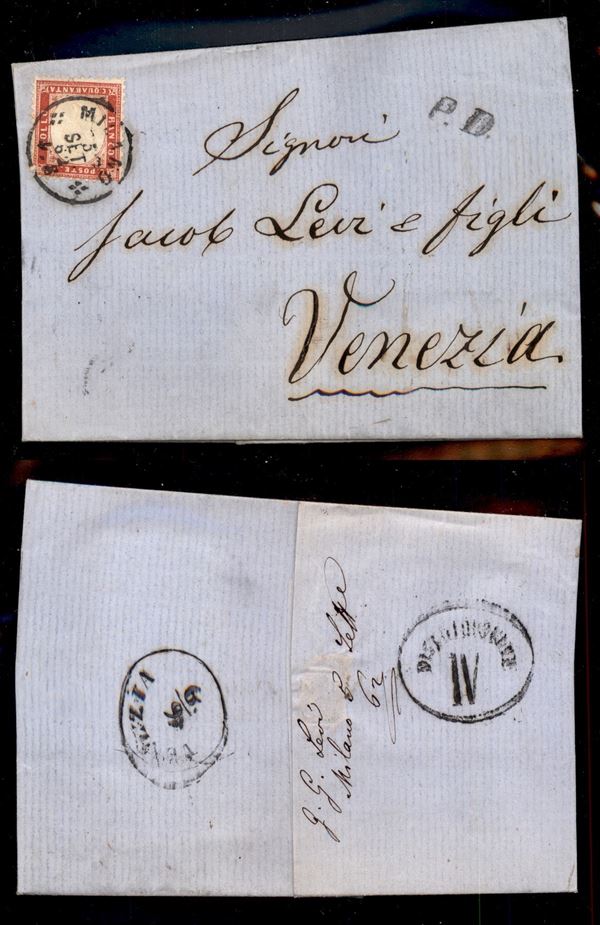 BOLLO
C. QUARANTA
FRANCO
POSTE
MILANO
5
SET
P.D.
Signori
Jacob Levi e figli
Venezia
VENEZIA
6/9
DISTRIBUZIONE
IV
J. G. Levi
Milano 5 Sette
62